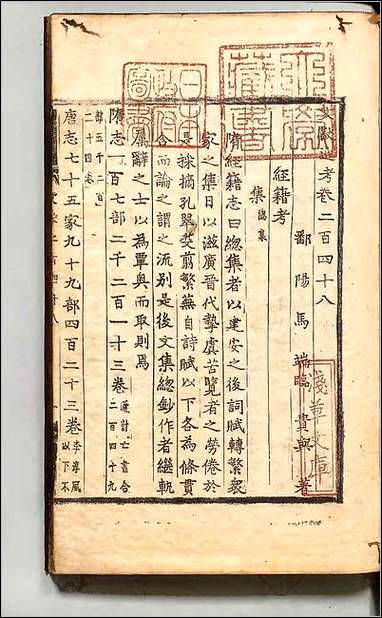 文獻通考卷二百四十八
鄱陽馬端臨貴與著
經籍考
集 總集
隋經籍志曰總集者以建安之後詞賦轉繁衆
家之集日以滋廣晉代摯虞苦覽者之勞倦於
是採摘孔翠芟剪繁蕪自詩賦以下各為條貫
合而論之謂之流別是後文集總鈔作者繼軌
屬辭之士以為覃奧而取則焉
隋志一百七部二千二百一十三卷 通計亡書合二百四十九
部五千二百二十四卷
唐志七十五家九十九部四百二十三卷 李淳風以下不
淺草文庫
日本政府圖書
藏書